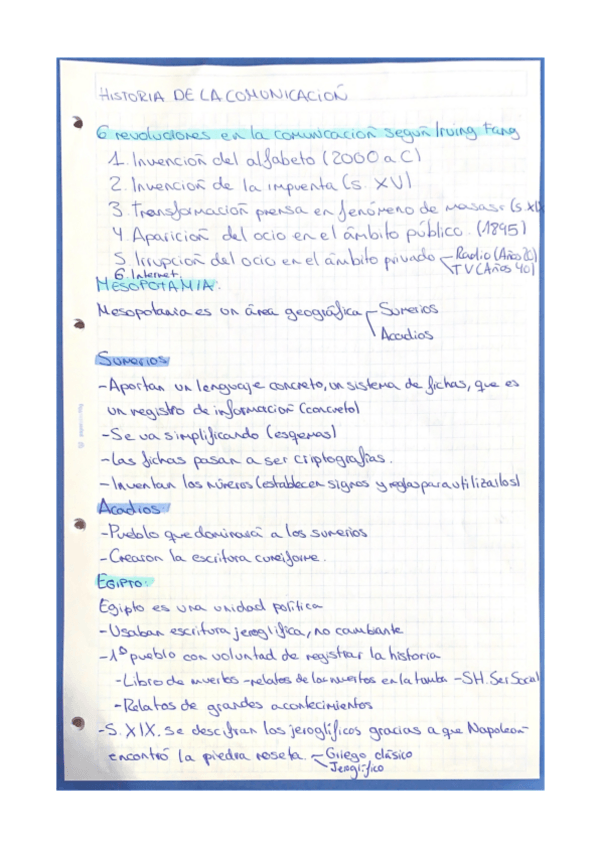 HISTORIA DE LA COMUNICACIÓN
6 revoluciones en la comunicación según Irving Fang
1. Invención del alfabeto (2000 a C)
2. Invención de la imprenta (s. XV)
3. Transformación prensa en fenómeno de masas. (s. XIX
4. Aparición del ocio en el ámbito público. (1895)
5. Irrupción del ocio en el ámbito privado - Radio (Años 20)
TV (Años 40)
6. Internet.
MESOPOTAMIA:
Mesopotamia es un área geográfica - Sumerios
Acadios
SUMERIOS
- Aportan un lenguaje concreto, un sistema de fichas, que es
un registro de información (concreto)
- Se va simplificando (esquemas)
- Las fichas pasan a ser criptografías.
- Inventan los números (establecen signos y reglas para utilizarlos)
Acadios:
- Pueblo que dominará a los sumerios
- Crearon la escritura cuneiforme.
EGIPTO:
Egipto es una unidad política
- Usaban escritura jeroglífica, no cambiante
- 1º pueblo con voluntad de registrar la historia
- Libro de muertos - relatos de los muertos en la tumba - SH. Ser Social
- Relatos de grandes acontecimientos
- S. XIX. se descifran los jeroglíficos gracias a que Napoleón
encontró la piedra roseta. - Griego clásico
- Jeroglífico